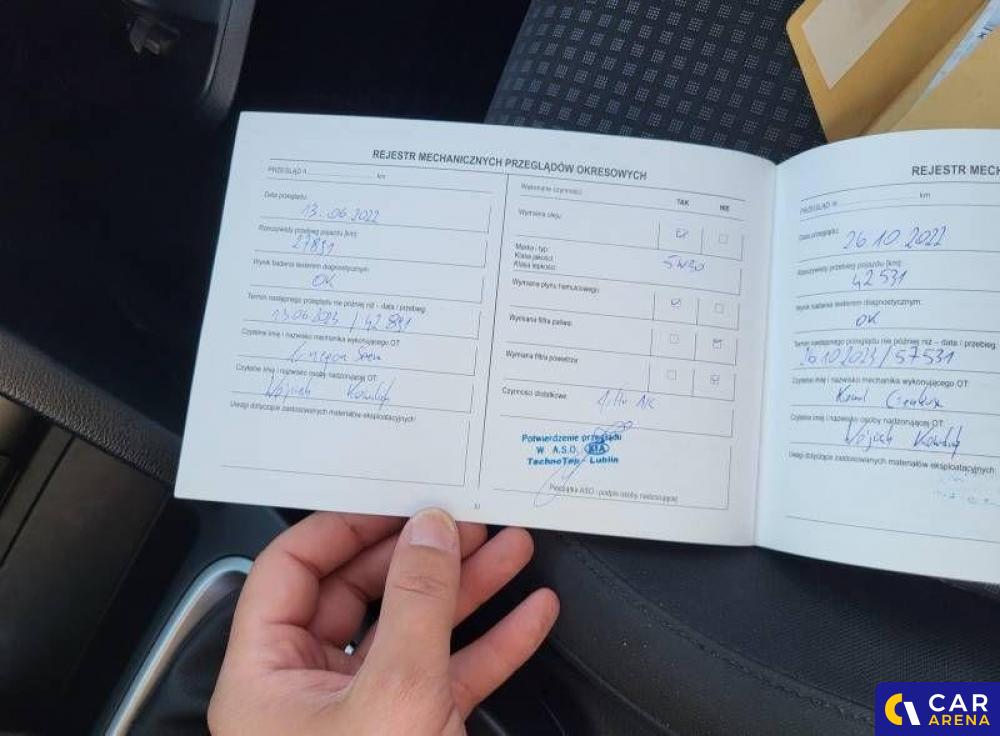 REJESTR MECHANICZNYCH PRZEGLĄDÓW OKRESOWYCH
PRZEGLĄD n km
Data przeglądu:
13.06.2022
Rzeczywisty przebieg pojazdu [km]:
27891
Wynik badania testerem diagnostycznym:
OK
Termin następnego przeglądu nie później niż - data i przebieg:
13.06.2023 / 42 891
Czytelne imię i nazwisko mechanika wykonującego OT:
Czytelne imię i nazwisko osoby nadzorującej OT:
Wojciech
Uwagi dotyczące zastosowanych materiałów eksploatacyjnych:
Wykonane czynności: TAK NIE
Wymiana oleju:
Marka - typ:
Klasa jakości: 5W30
Klasa lepkości:
Wymiana płynu hamulcowego:
Wymiana filtra paliwa:
Wymiana filtra powietrza:
Czynności dodatkowe:
Potwierdzenie przeglądu
W A.S.O. KIA
TechnoTop - Lublin
Pieczątka ASO i podpis osoby nadzorującej
REJESTR MECH
PRZEGLĄD nr km
Data przeglądu:
26.10.2022
Rzeczywisty przebieg pojazdu [km]:
42 531
Wynik badania testerem diagnostycznym:
OK
Termin następnego przeglądu nie później niż - data i przebieg:
26.10.2023 / 57531
Czytelne imię i nazwisko mechanika wykonującego OT:
Czytelne imię i nazwisko osoby nadzorującej OT:
Wojciech
Uwagi dotyczące zastosowanych materiałów eksploatacyjnych:
CAR
ARENA